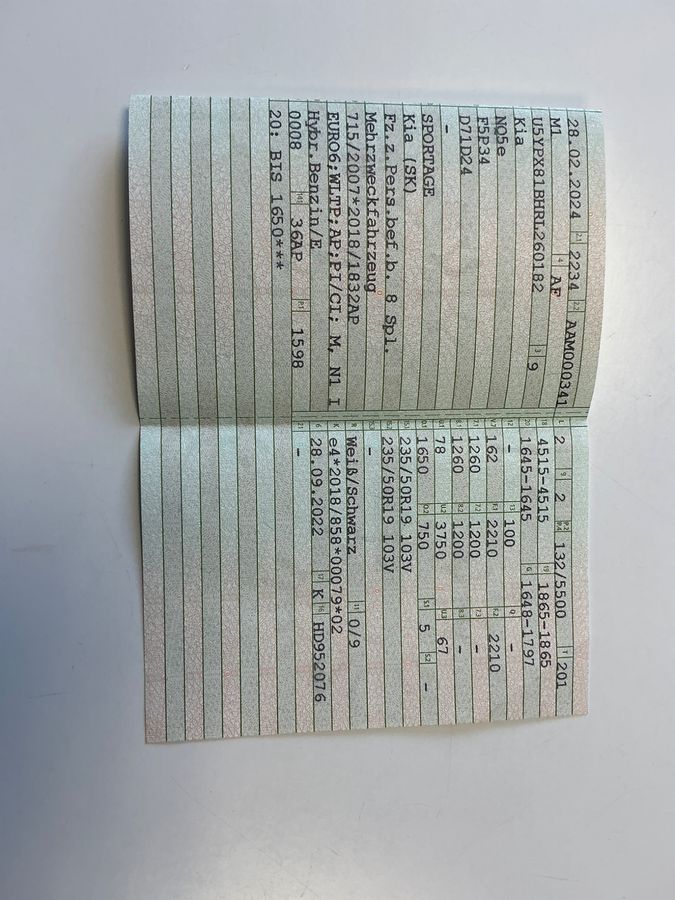 28.02.2024 2.1 2234 2.2 AAM000341
M1 4 AF
U5YPX81BHRL260182 3 9
Kia
NQ5e
F5P34
D71D24
-
SPORTAGE
Kia (SK)
Fz.z.Pers.bef.b. 8 Spl.
Mehrzweckfahrzeug
715/2007*2018/1832AP
EURO6;WLTP;AP;PI/CI; M, N1 I
Hybr.Benzin/E
0008 14.1 36AP P.1 1598
20: BIS 1650***
L 2 9 2 P.2 P.4 132/5500 T 201
18 4515-4515 19 1865-1865
20 1645-1645 G 1648-1797
12 - 13 100 Q -
V.7 162 F.1 2210 F.2 2210
7.1 1260 7.2 1200 7.3 -
8.1 1260 8.2 1200 8.3 -
U.1 78 U.2 3750 U.3 67
O.1 1650 O.2 750 S.1 5 S.2 -
15.1 235/50R19 103V
15.2 235/50R19 103V
15.3 -
R Weiß/Schwarz 11 0/9
K e4*2018/858*00079*02
6 28.09.2022 17 K 16 HD952076
21 -